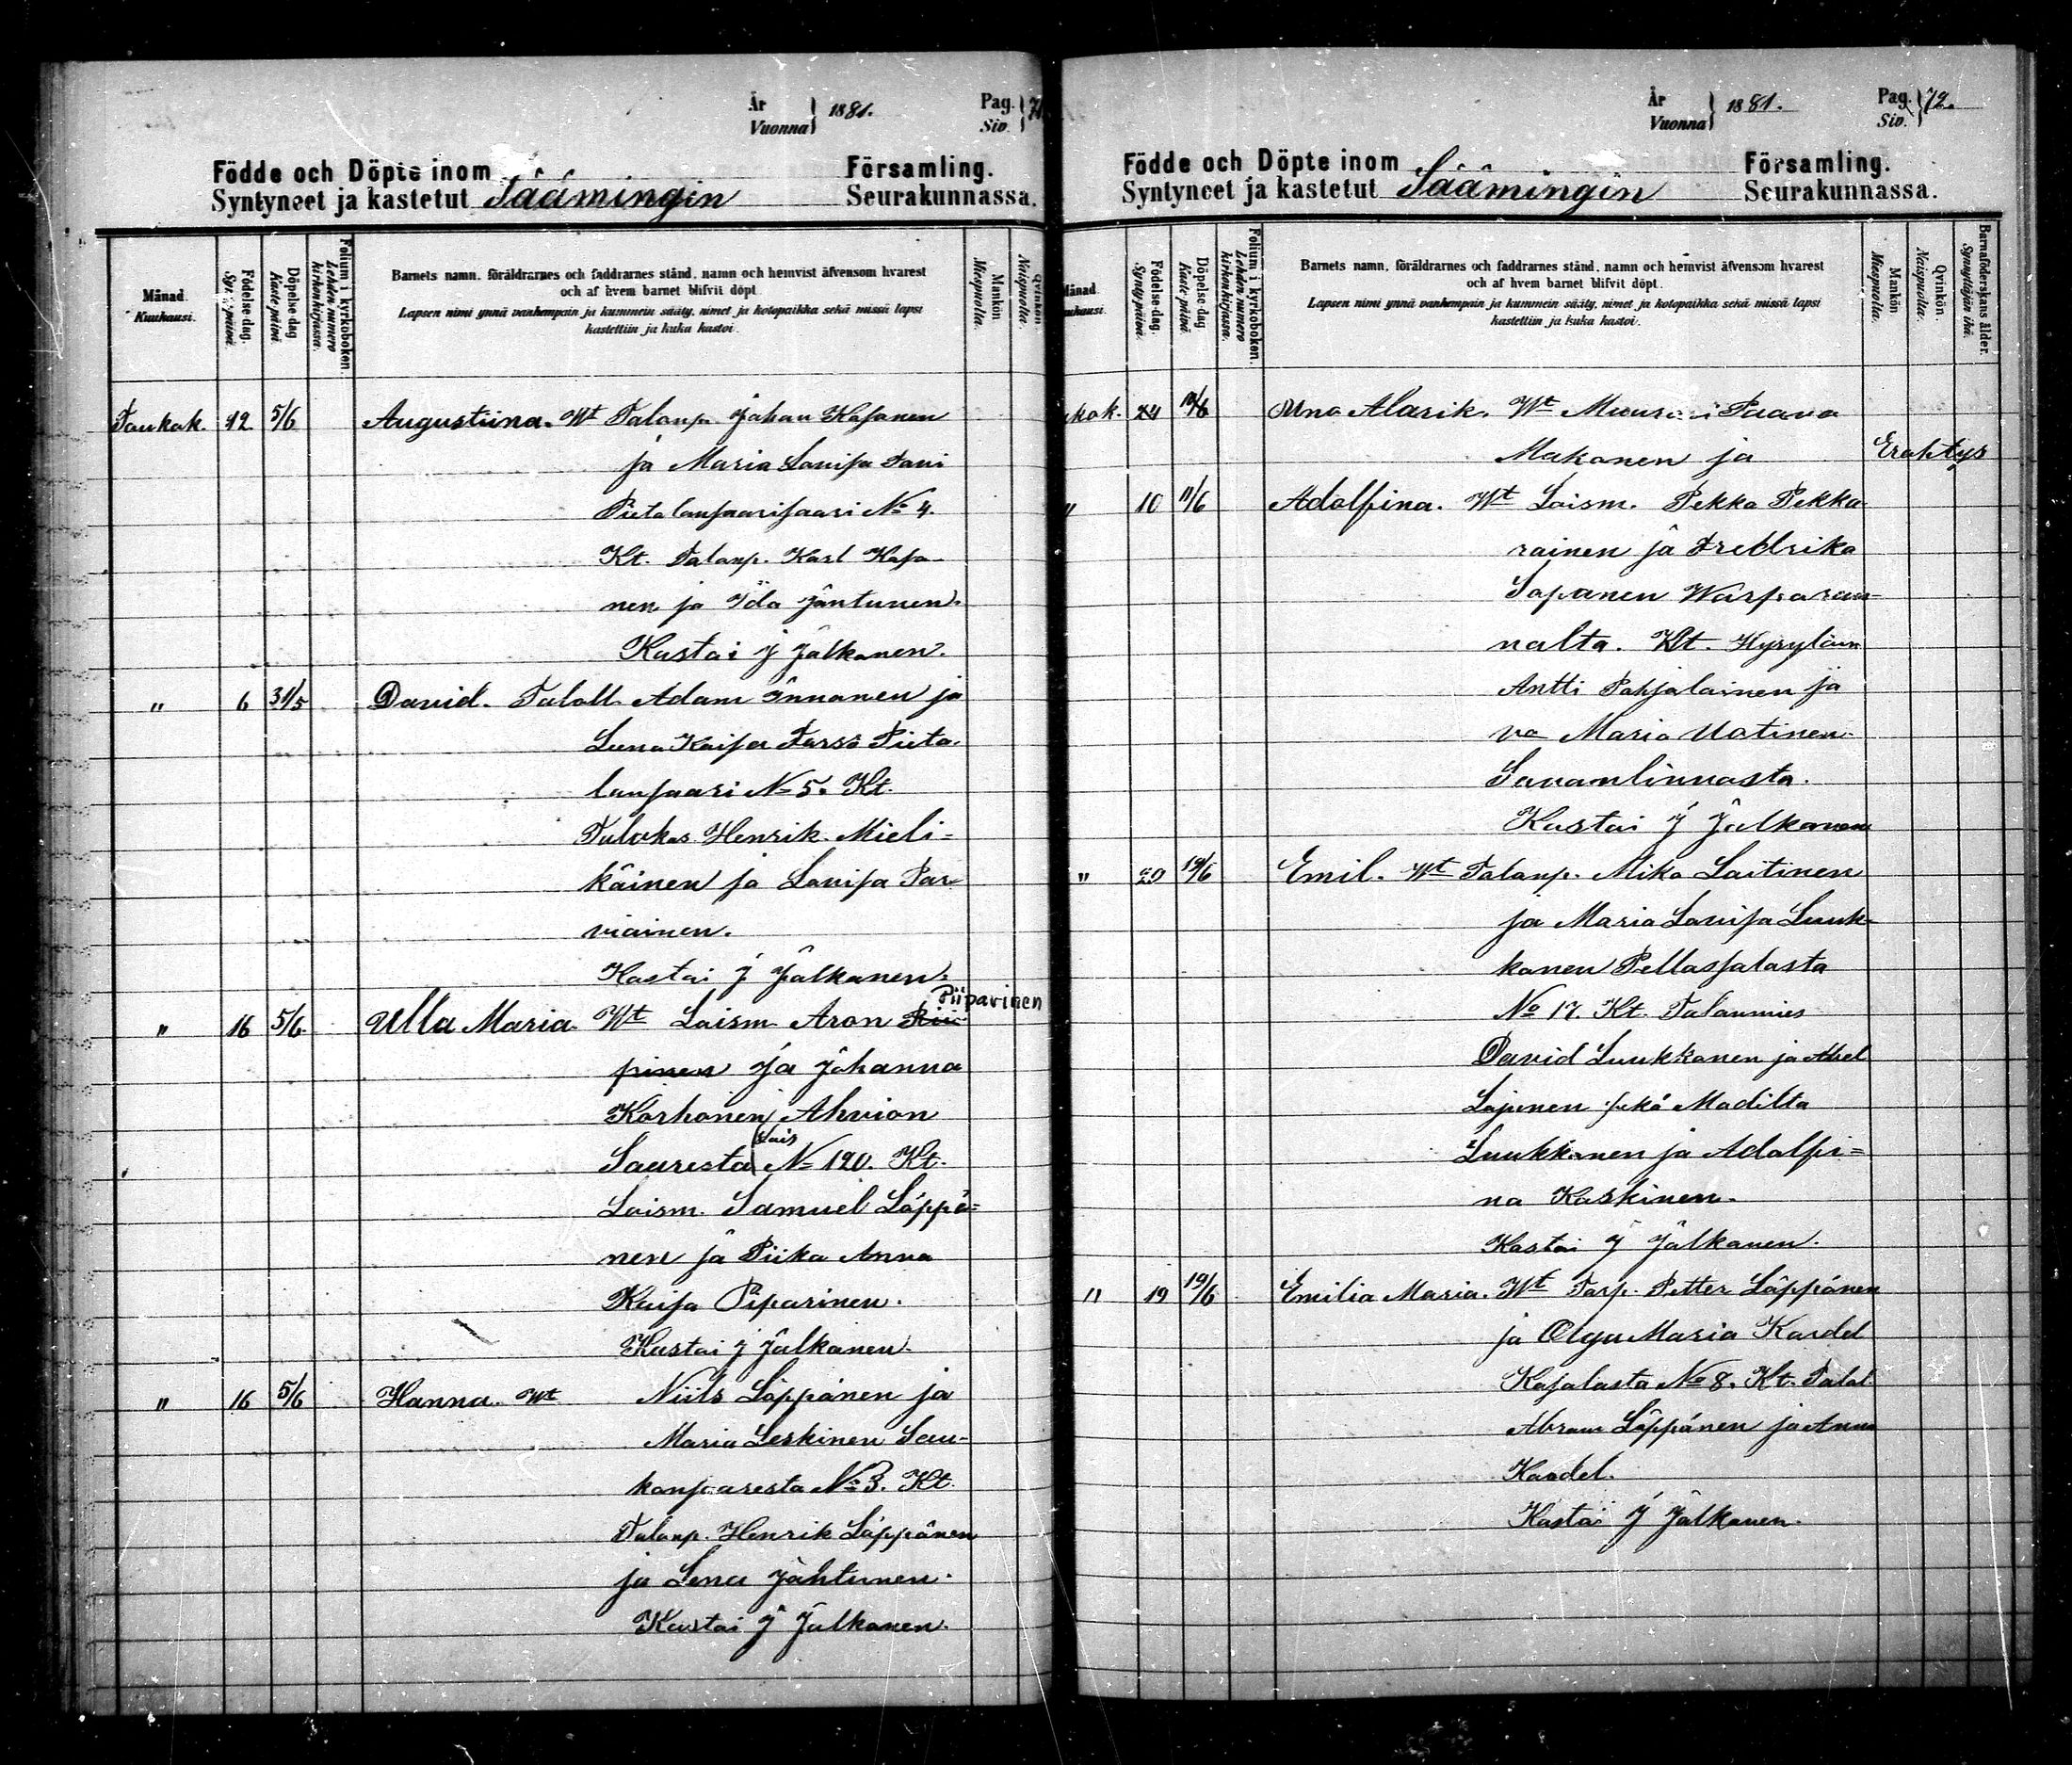 År
Vuonna } 1881.
Pag.
Siv. } 71
Födde och Döpte inom
Syntyneet ja kastetut Säämingin
Församling.
Seurakunnassa.
Månad.
Kuukausi.
Födelse-dag.
Synty päivä.
Döpelse-dag
Kaste päivä.
Folium i kyrkoboken.
Lehden numero
kirkonkirjassa.
Barnets namn, föräldrarnes och faddrarnes stånd, namn och hemvist äfvensom hvarest
och af hvem barnet blifvit döpt.
Lapsen nimi ynnä vanhempain ja kummein sääty, nimet ja kotopaikka sekä missä lapsi
kastettiin ja kuka kastoi.
Mankön.
Miespuolia.
Qvinkön
Naispuolia.
Toukok. 12 5/6 Augustiina. Wt Talonp. Johan Kosonen
ja Maria Lovisa
Pietolansaari №4.
Kt. Talonp. Karl Koso-
nen ja Ida Jantunen.
Kastoi J Jalkanen.
" 6 31/5 David. Taloll. Adam Innanen ja
Leena Kaisa Tarsa Pieto-
lansaari №5. Kt.
Talokas Henrik Mieli=
käinen ja Lovisa Par-
viainen.
Kastoi J Jalkanen.
Piiparinen
" 16 5/6 Ulla Maria. Wt Loism. Aron Pii-
pinen ja Johanna
Korhonen Ahvion
Lois
Saaresta №120. Kt.
Loism. Samuel Löppö=
nen ja Piika Anna
Kaisa Piparinen.
Kastoi J Jalkanen.
" 16 5/6 Hanna. Wt Niils Löppönen ja
Maria Leskinen Lau-
kansaaresta №3. Kt.
Talonp. Henrik Löppönen
ja Lena Jahtunen.
Kastoi J Jalkanen.
År
Vuonna } 1881.
Pag.
Siv. } 72.
Födde och Döpte inom
Syntyneet ja kastetut Säämingin
Församling.
Seurakunnassa.
Månad
Kuukausi.
Födelse-dag.
Synty päivä.
Döpelse-dag
Kaste päivä.
Folium i kyrkoboken.
Lehden numero
kirkonkirjassa.
Barnets namn, föräldrarnes och faddrarnes stånd, namn och hemvist äfvensom hvarest
och af hvem barnet blifvit döpt.
Lapsen nimi ynnä vanhempain ja kummein sääty, nimet ja kotopaikka sekä missä lapsi
kastettiin ja kuka kastoi.
Mankön.
Miespuolia.
Qvinkön.
Naispuolia.
Barnaföderskans ålder.
Synnyttäjän ikä.
ukok. 24 Uno Alarik. Wt Muurari Paavo
Makonen ja Erehtys
" 10 11/6 Adolfina. Wt Loism. Pekka Pekka-
rainen ja Fredrika
Sopanen Wasparan=
nalta. Kt.
Antti Pohjalainen ja
va Maria Uotinen
Savonlinnasta.
Kastoi J Jalkanen
" 20 19/6 Emil. Wt Talonp. Mika Laitinen
ja Maria Lovisa Luuk-
konen Pellossalosta
№ 17. Kt. Talonmies
David Luukkonen ja Abel
Lojonen sekä Madilta
Luukkonen ja Adolfi=
na Koskinen.
Kastoi J Jalkanen.
" 19 19/6 Emilia Maria. Wt Torp. Petter Löppönen
ja Olga Maria Kardel
Kosolasta №8. Kt. Talol.
Abram Löppönen ja Anna
Kardel.
Kastoi J Jalkanen.